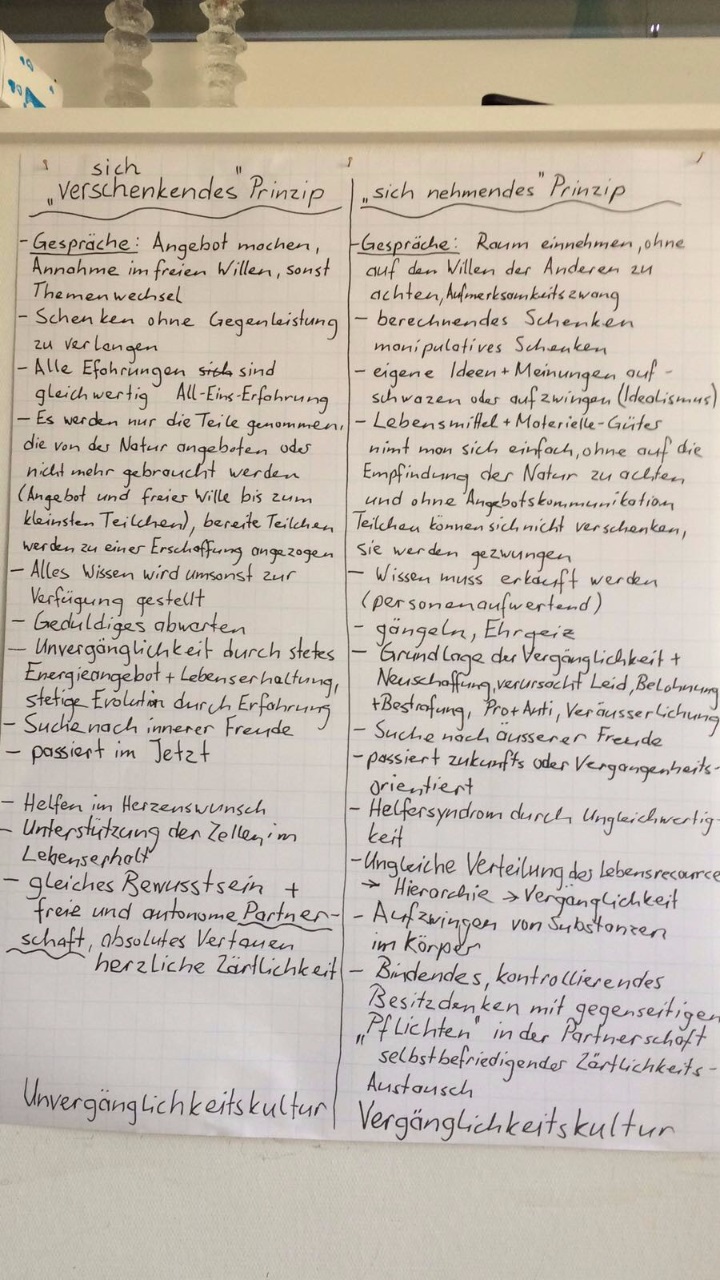 sich
„verschenkendes" Prinzip
- Gespräche: Angebot machen,
Annahme im freien Willen, sonst
Themenwechsel
- Schenken ohne Gegenleistung
zu verlangen
- Alle Efahrungen sich sind
gleichwertig All-Eins-Erfahrung
- Es werden nur die Teile genommen,
die von der Natur angeboten oder
nicht mehr gebraucht werden
(Angebot und freier Wille bis zum
kleinsten Teilchen), bereite Teilchen
werden zu einer Erschaffung angezogen
- Alles Wissen wird umsonst zur
Verfügung gestellt
- Geduldiges abwarten
- Unvergänglichkeit durch stetes
Energieangebot + Lebenserhaltung,
stetige Evolution durch Erfahrung
- Suche nach innerer Freude
- passiert im Jetzt
- Helfen im Herzenswunsch
- Unterstützung der Zellen im
Lebenserhalt
- gleiches Bewusstsein +
freie und autonome Partner-
schaft, absolutes Vertauen
herzliche Zärtlichkeit
Unvergänglichkeitskultur
„sich nehmendes" Prinzip
- Gespräche: Raum einnehmen, ohne
auf den Willen der Anderen zu
achten, Aufmerksamkeitszwang
- berechnendes Schenken
manipulatives Schenken
- eigene Ideen + Meinungen auf-
schwazen oder aufzwingen (Idealismus)
- Lebensmittel + Materielle-Güter
nimt man sich einfach, ohne auf die
Empfindung der Natur zu achten
und ohne Angebotskommunikation
Teilchen können sich nicht verschenken,
sie werden gezwungen
- Wissen muss erkauft werden
(personenaufwertend)
- gängeln, Ehrgeiz
- Grundlage der Vergänglichkeit +
Neuschaffung, verursacht Leid, Belohnung
+ Bestrafung, Pro + Anti, Veräusserlichung
- Suche nach äusserer Freude
- passiert zukunfts oder Vergangenheits-
orientiert
- Helfersyndrom durch Ungleichwertig-
keit
- Ungleiche Verteilung der Lebensresource
→ Hierarchie → Vergänglichkeit
- Aufzwingen von Substanzen
im Körper
- Bindendes, kontrollierendes
Besitzdenken mit gegenseitigen
„Pflichten" in der Partnerschaft
selbstbefriedigender Zärtlichkeits-
Austausch
Vergänglichkeitskultur